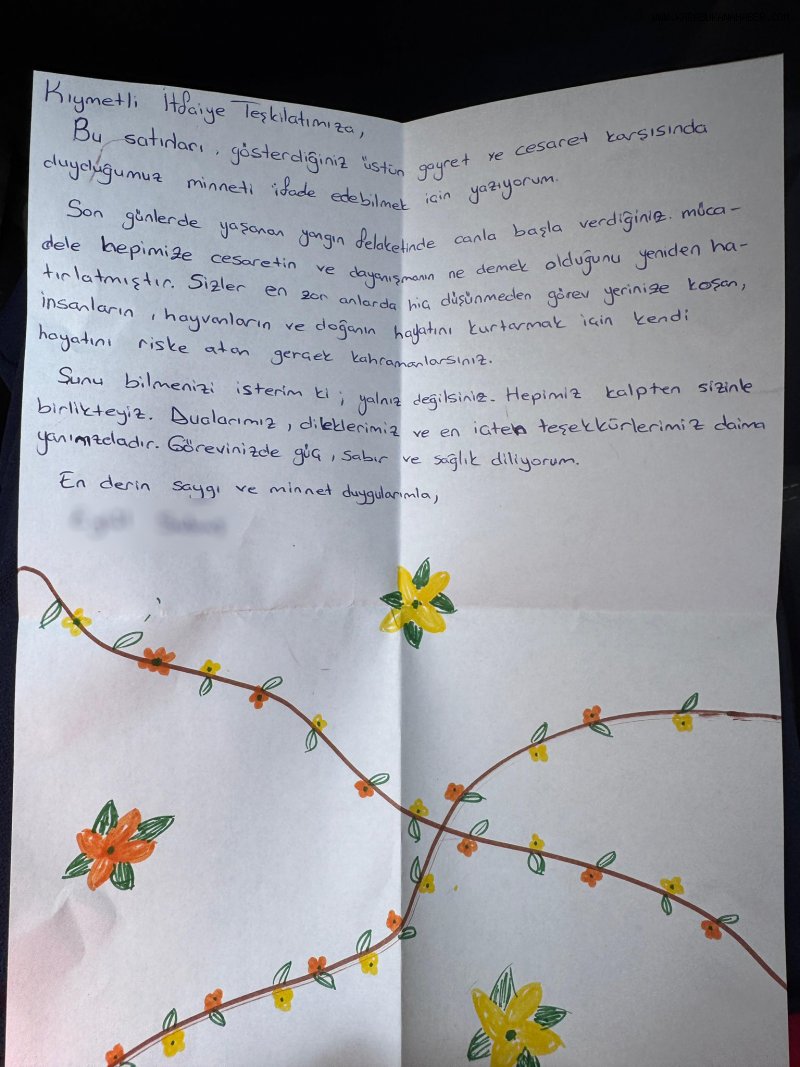 Kıymetli İtfaiye Teşkilatımıza,
Bu satırları, gösterdiğiniz üstün gayret ve cesaret karşısında
duyduğumuz minneti ifade edebilmek için yazıyorum.
Son günlerde yaşanan yangın felaketinde canla başla verdiğiniz müca-
dele hepimize cesaretin ve dayanışmanın ne demek olduğunu yeniden ha-
tırlatmıştır. Sizler en zor anlarda hiç düşünmeden görev yerinize koşan,
insanların, hayvanların ve doğanın hayatını kurtarmak için kendi
hayatını riske atan gerçek kahramanlarsınız.
Şunu bilmenizi isterim ki; yalnız değilsiniz. Hepimiz kalpten sizinle
birlikteyiz. Dualarımız, dileklerimiz ve en içten teşekkürlerimiz daima
yanınızdadır. Görevinizde güç, sabır ve sağlık diliyorum.
En derin saygı ve minnet duygularımla,